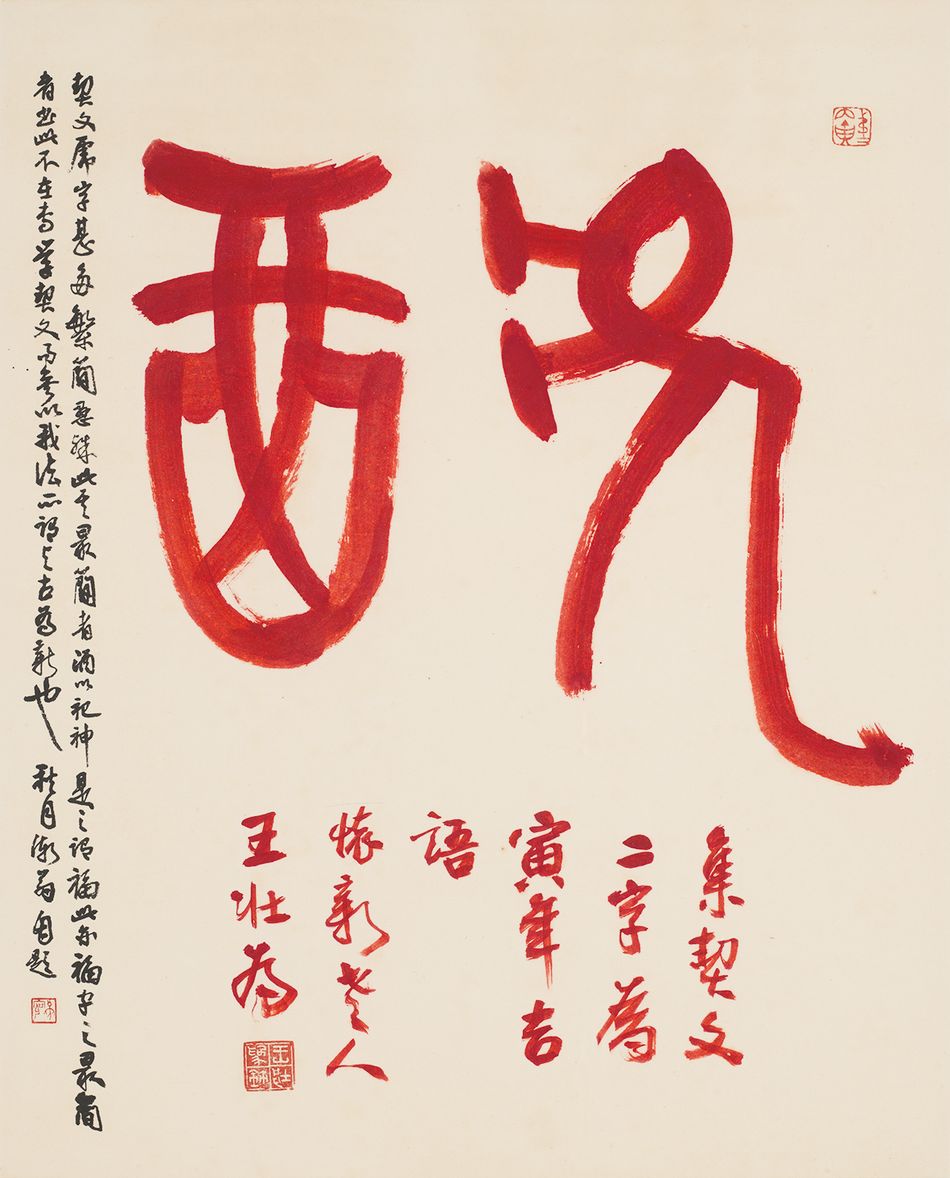 虎福
集契文
二字為
寅年吉
語
懷新老人
王壯為
契文虎字甚多繁簡懸殊此其最簡者酒以祀神是之謂福此亦福字之最簡
者書此不在專學契文而參以我法所謂與古為新也 秋月漸翁自題